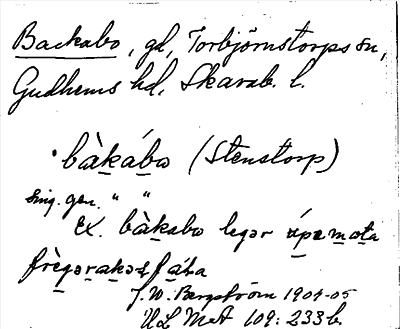 Backabo, gd, Torbjörnstorps sn,
Gudhems hd, Skarab. l.
bàkábo (Stenstorp)
sing. gen. " "
Ex. bàkabo legər úpə mota
J. W. Bergström 1904-05
ULMA 109: 233 b.